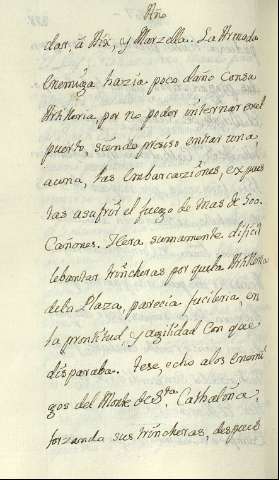 Año
dar, â Aix, y Marzella. La Armada
Enemiga hazia poco daño Consu
Artilleria, por no poder internar en el
puerto, siendo presiso entrar una,
auna, las embarcaziônes, expues
tas asufrir el fuego de mas de 500
Cañones. Hera sumamente dificil
lebantar trincheras por que la Artilleria
dela Plaza, parecia fucileria, en
la prontitud, y agilidad con que
disparaba. Fese, echo alos Enemi
gos del Monte de Sta. Cathalina,
forzando sus trincheras, despues